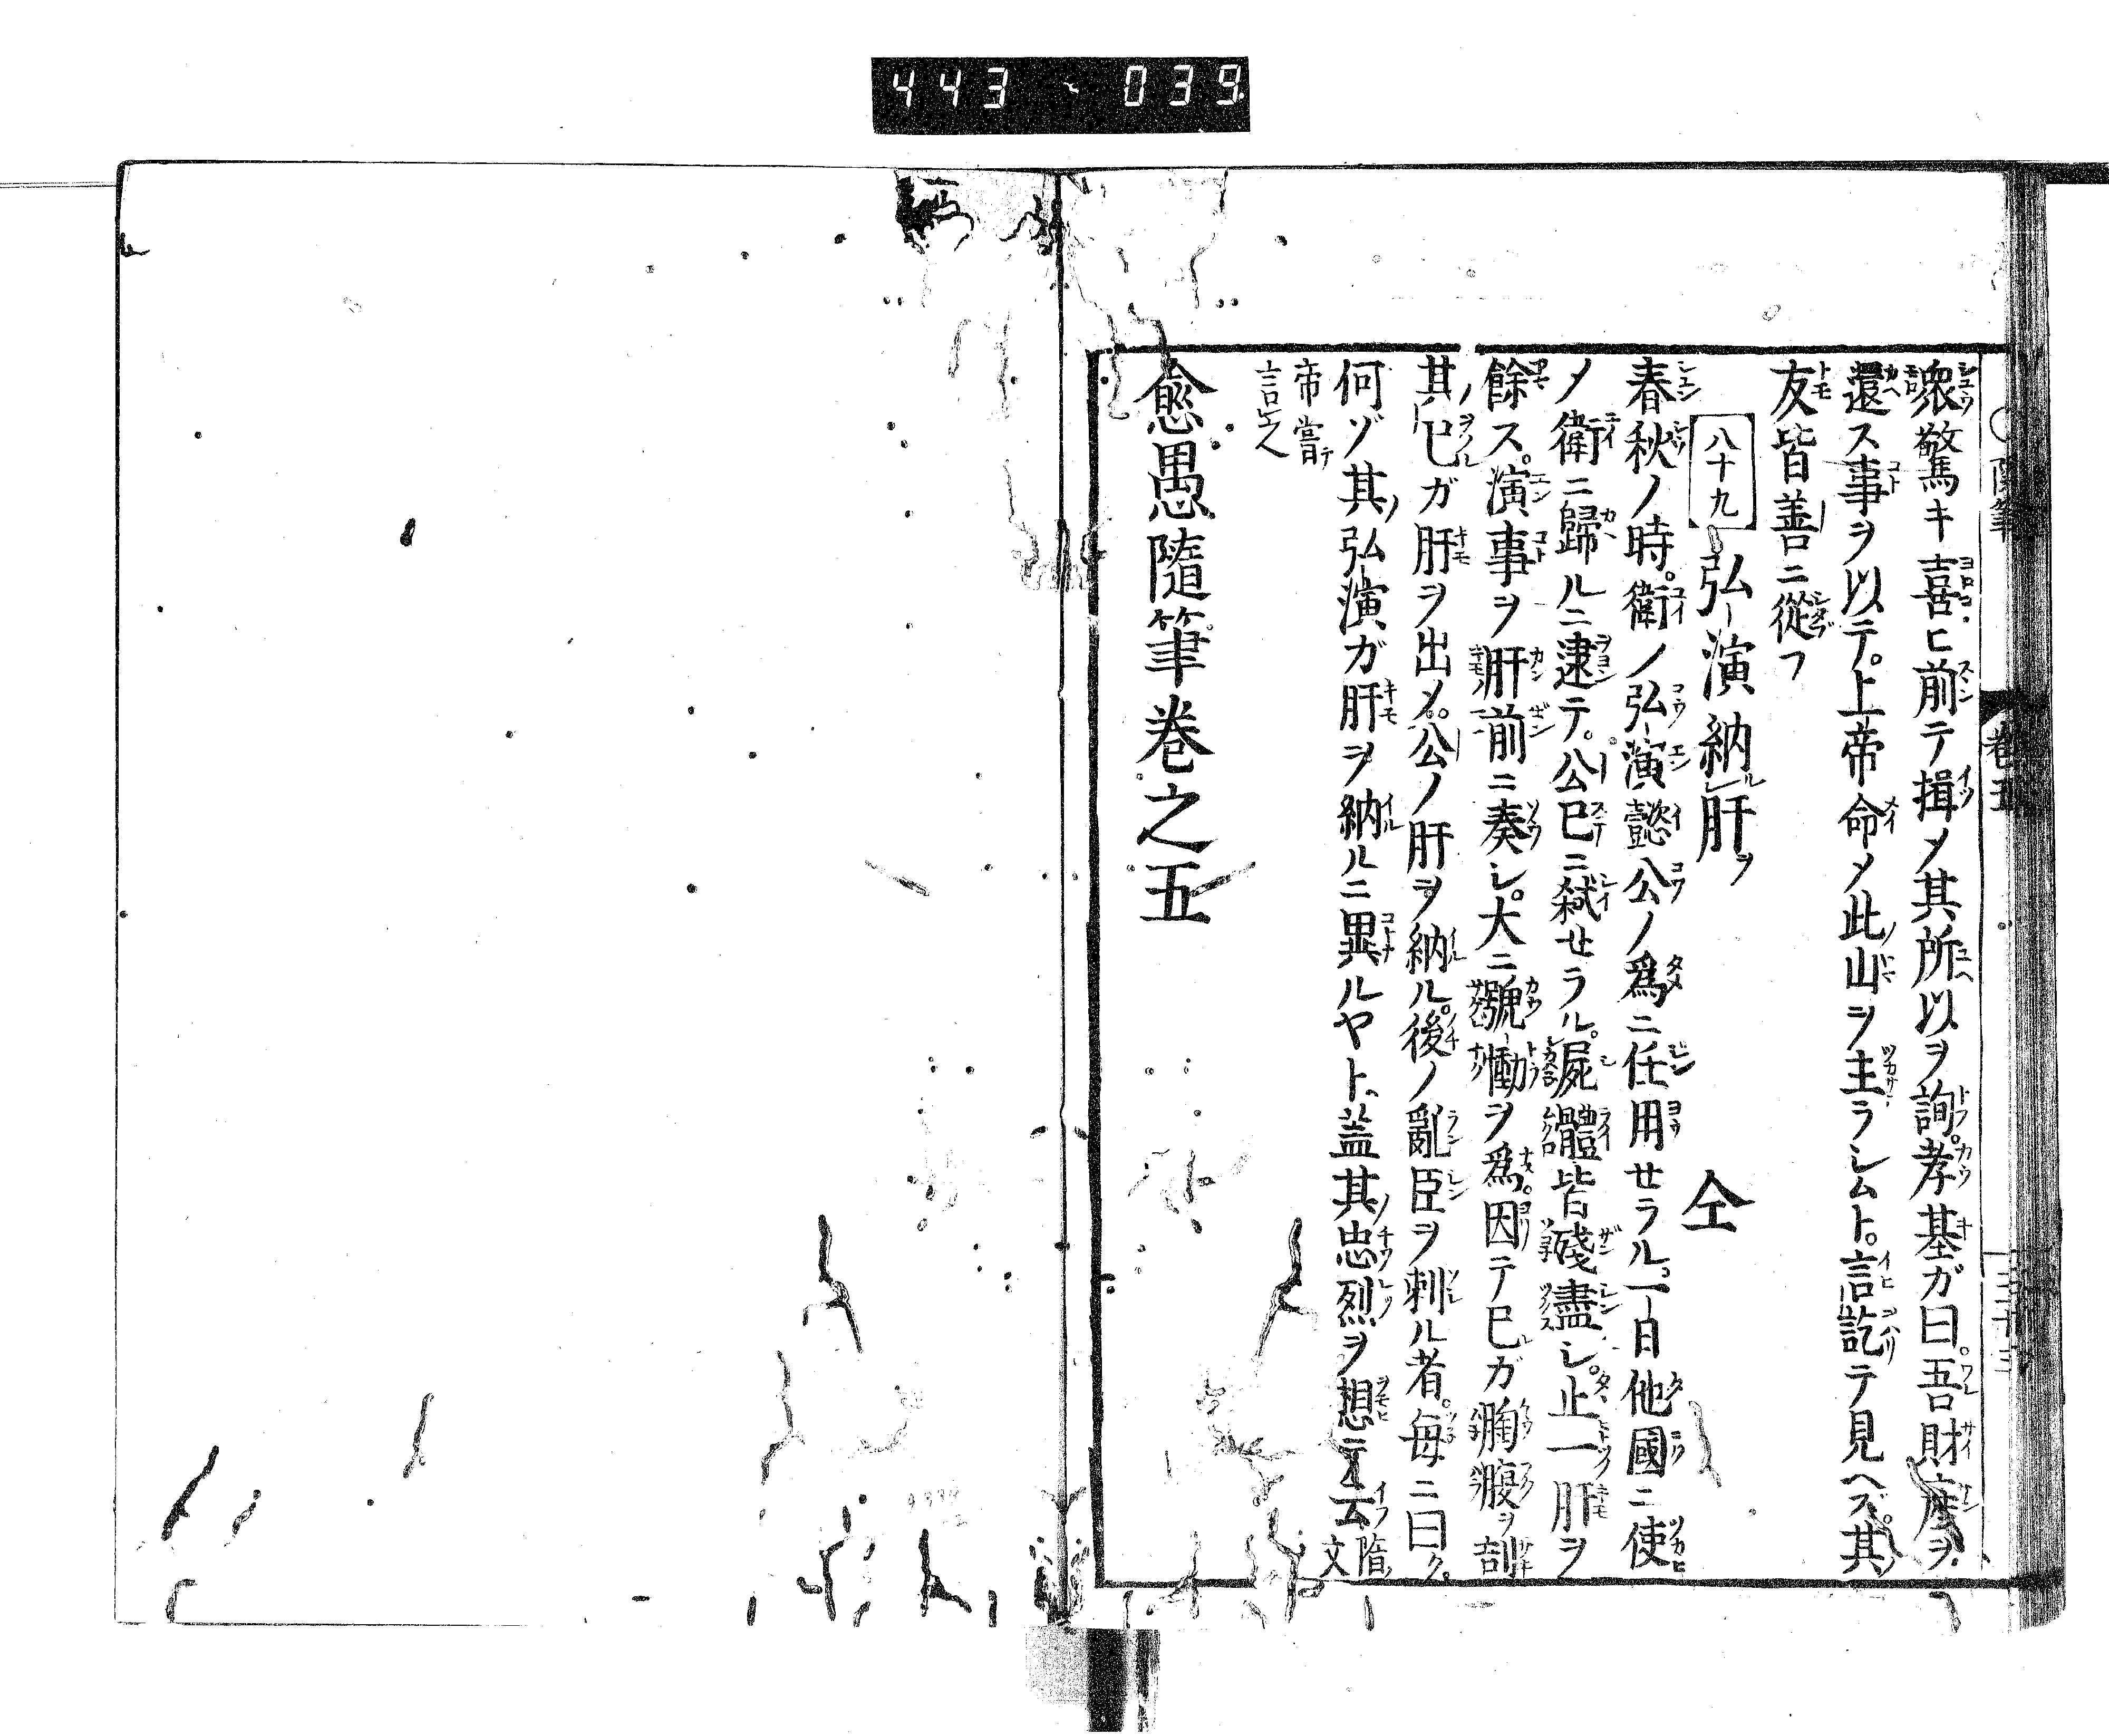 443 039
衆驚キ喜ヒ前テ揖〆其所以ヲ詢。孝基ガ曰。吾財産ヲ
還ス事ヲ以テ。上帝命〆此山ヲ主ラシムト。言訖テ見ヘズ。其
友皆善ニ從フ
八十九 弘演納肝ヲ 仝
春秋ノ時。衛ノ弘演懿公ノ爲ニ任用せラル。一日他國ニ使
〆衛ニ歸ルニ逮テ。公已ニ弑せラル。屍體皆殘盡シ。止一肝ヲ
餘ス。演事ヲ肝前ニ奏シ。大ニ號慟ヲ爲。因テ已ガ胸腹ヲ刳
其已ガ肝ヲ出〆。公ノ肝ヲ納ル。後ノ亂臣ヲ刺ル者。毎ニ曰ク。
何ゾ其弘演ガ肝ヲ納ルニ異ルヤト、蓋其忠烈ヲ想テ云 隋文
帝嘗テ
言之
愈愚隨筆巻之五